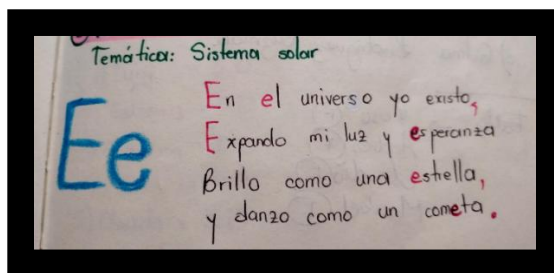 Temática: Sistema solar
Ee
En el universo yo existo,
Expando mi luz y esperanza
Brillo como una estrella,
y danzo como un cometa.